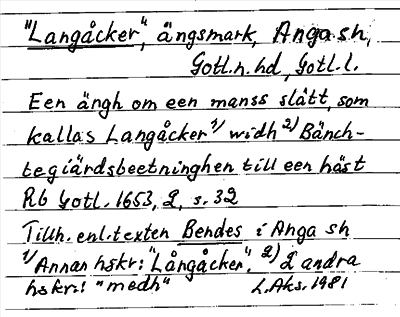 "Langåcker", ängsmark, Anga sh,
Gotl.n. hd, Gotl. l.
Een ängh om een manss slått, som
kallas Langåcker 1) widh 2) Bänch-
tegiärdsbeetninghen till een häst
Rb Gotl. 1653, 2, s. 32
Tillh. enl. texten Bendes i Anga sh
1) Annan hskr: "Långåcker". 2) I andra
hskr: "medh" L. Aks. 1981